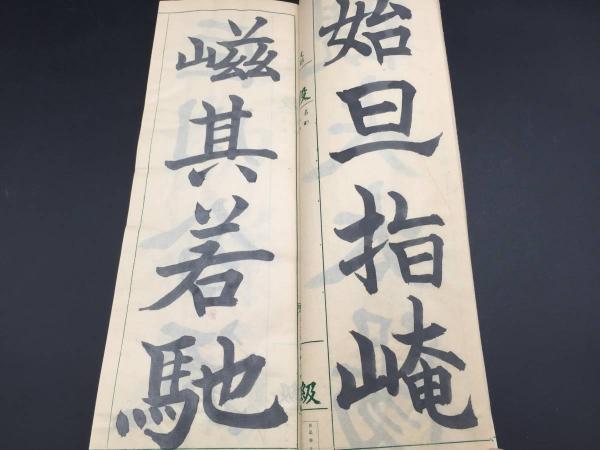 始旦指崦
段
級
嵫其若馳